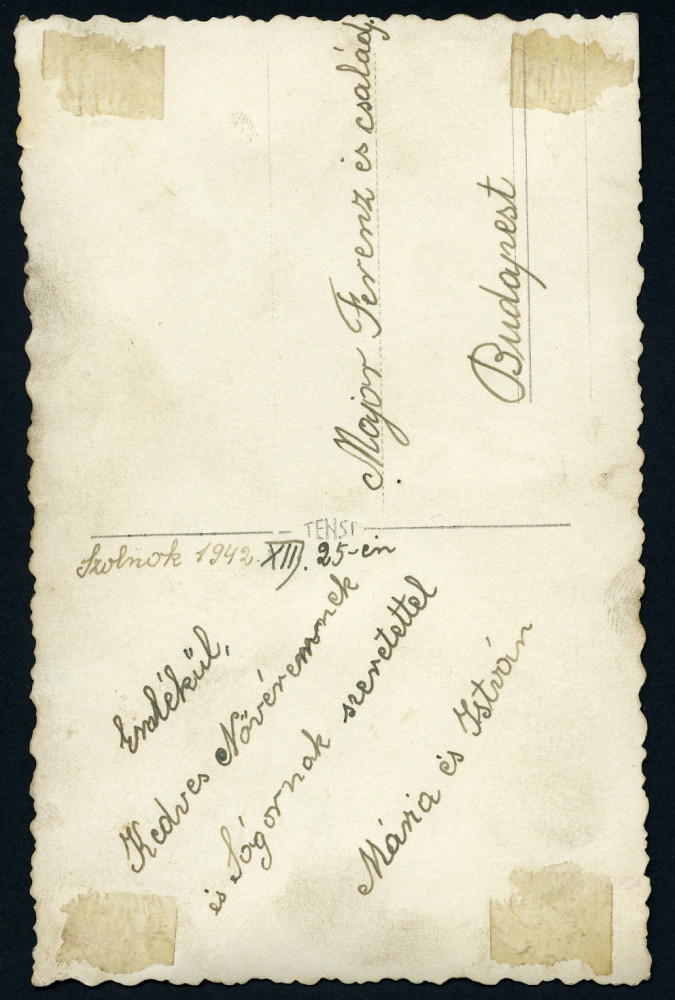 Major Ferenz és család.
Budapest
TENSI
Szolnok 1942. XII. 25-én
Emlékül,
Kedves Nővéremnek
és Sógornak szeretettel
Mária és István